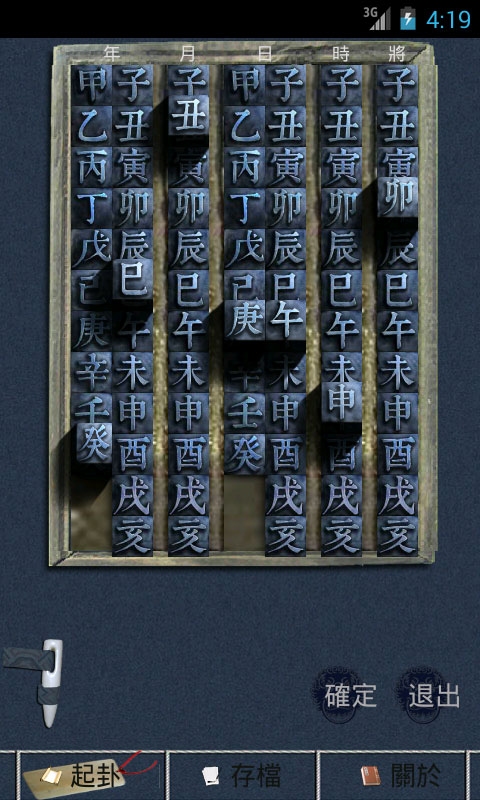 3G 4:19
年 月 日 時 將
甲 子 子 甲 子 子 子
乙 丑 丑 乙 丑 丑 丑
丙 寅 寅 丙 寅 寅 寅
丁 卯 卯 丁 卯 卯 卯
戊 辰 辰 戊 辰 辰 辰
己 巳 巳 己 巳 巳 巳
庚 午 午 庚 午 午 午
辛 未 未 辛 未 未
壬 申 申 壬 申 申 申
癸 酉 酉 癸 酉 酉 酉
戌 戌 戌 戌 戌
亥 亥 亥 亥 亥
確定 退出
起卦 存檔 關於